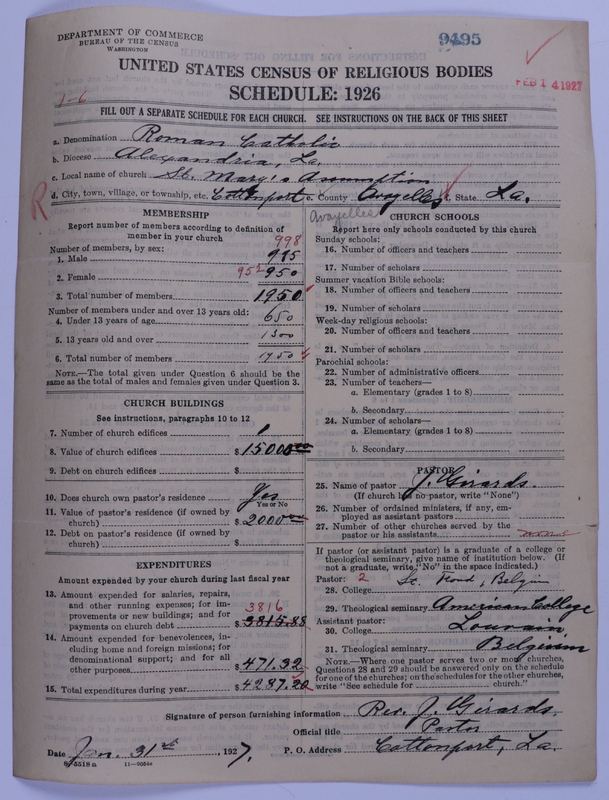 DEPARTMENT OF COMMERCE
BUREAU OF THE CENSUS
WASHINGTON
9495
UNITED STATES CENSUS OF RELIGIOUS BODIES
SCHEDULE: 1926
FEB 14 1927
1-6
FILL OUT A SEPARATE SCHEDULE FOR EACH CHURCH. SEE INSTRUCTIONS ON THE BACK OF THIS SHEET
a. Denomination Roman Catholic
b. Diocese Alexandria, La.
c. Local name of church St. Mary's Assumption
d. City, town, village, or township, etc. Cottonport e. County Avoyelles f. State La.
R
Avoyelles
MEMBERSHIP
Report number of members according to definition of
member in your church
Number of members, by sex: 998
1. Male 975
2. Female 952 950
3. Total number of members 1950
Number of members under and over 13 years old:
4. Under 13 years of age 650
5. 13 years old and over 1300
6. Total number of members 1950
NOTE.—The total given under Question 6 should be
same as the total of males and females given under Question 3.
CHURCH BUILDINGS
See instructions, paragraphs 10 to 12
7. Number of church edifices 1
8. Value of church edifices $ 15000 00
9. Debt on church edifices $
10. Does church own pastor's residence Yes
Yes or No
11. Value of pastor's residence (if owned by
church) $ 2000 00
12. Debt on pastor's residence (if owned by
church) $
EXPENDITURES
Amount expended by your church during last fiscal year
13. Amount expended for salaries, repairs,
and other running expenses; for im-
provements or new buildings; and for 3816
payments on church debt $ 3815.88
14. Amount expended for benevolences, in-
cluding home and foreign missions; for
denominational support; and for all
other purposes $ 471.32
15. Total expenditures during year $ 4287.20
CHURCH SCHOOLS
Report here only schools conducted by this church
Sunday schools:
16. Number of officers and teachers
17. Number of scholars
Summer vacation Bible schools:
18. Number of officers and teachers
19. Number of scholars
Week-day religious schools:
20. Number of officers and teachers
21. Number of scholars
Parochial schools:
22. Number of administrative officers
23. Number of teachers—
a. Elementary (grades 1 to 8)
b. Secondary
24. Number of scholars—
a. Elementary (grades 1 to 8)
b. Secondary
PASTOR
25. Name of pastor J. Gerards.
(If church has no pastor, write "None")
26. Number of ordained ministers, if any, em-
ployed as assistant pastors
27. Number of other churches served by the
pastor or his assistants
If pastor (or assistant pastor) is a graduate of a college or
theological seminary, give name of institution below. (If
not a graduate, write "No" in the space indicated.)
Pastor: 2
28. College St. Trond, Belgin
29. Theological seminary American College
Assistant pastor:
30. College Louvain,
31. Theological seminary Belgium
NOTE.—Where one pastor serves two or more churches,
Questions 28 and 29 should be answered only on the schedule
for one of the churches; on the schedules for the other churches,
write "See schedule for church."
Signature of person furnishing information Rev. J. Gerards
Official title Pastor
Date Jan. 31st, 1927. P. O. Address Cottonport, La.
8-5518 a 11—9054